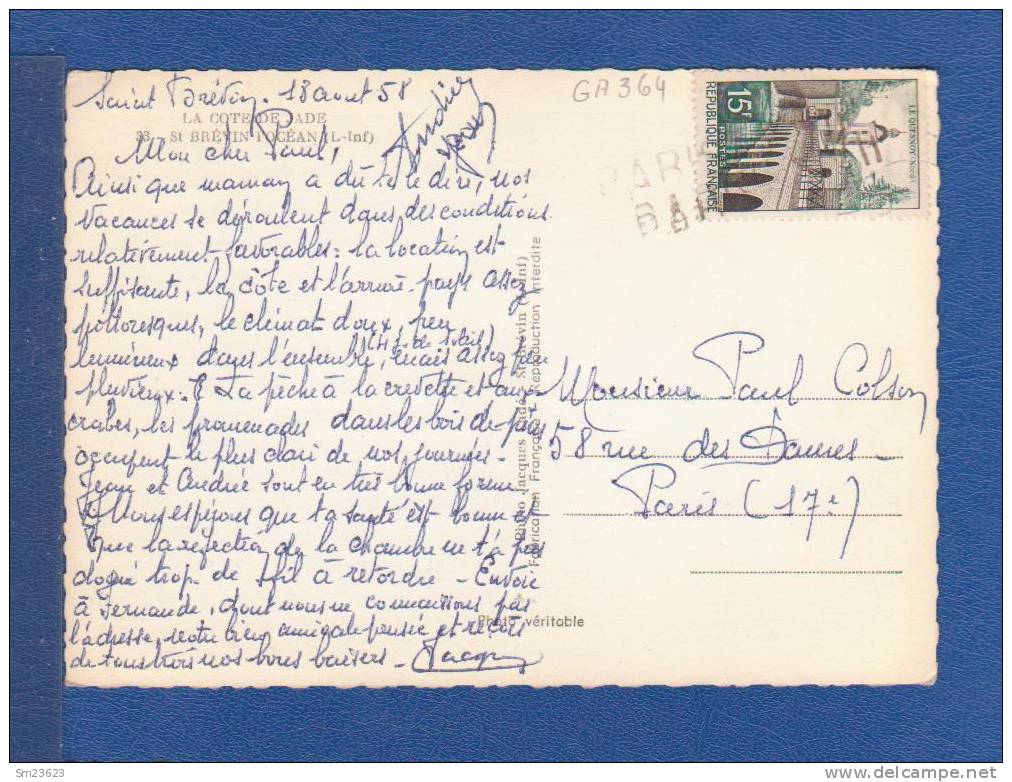 Saint Brévin. 18 aout 58
LA COTE DE JADE
33. St BRÉVIN l'OCÉAN (L-Inf)
Mon cher Paul,
Ainsi que maman a dû te le dire, nos
vacances se déroulent dans des conditions
relativement favorables : la location est
suffisante, la côte et l'arrière pays assez
pittoresques, le climat doux, peu
lumineux dans l'ensemble, mais assez peu
pluvieux. La pêche à la crevette et aux
crabes, les promenades dans les bois de pins
occupent le plus clair de nos journées.
Jean et Andrée sont en très bonne forme
Nous espérons que ta santé est bonne et
que la réfection de la chambre ne t'a pas
donné trop de fil à retordre. Envoie
à Fernande, dont nous ne connaissons pas
l'adresse, notre bien amicale pensée et reçois
de tous trois nos bons baisers. Jacques
Andrée
GA364
15F
POSTES
REPUBLIQUE FRANÇAISE
LE QUESNOY (NORD)
PARIS
Monsieur Paul Colson
58 rue des Dames
Paris (17e)
Fabrication Française - Reproduction Interdite
Photo véritable
Sm23623
delcampe.net